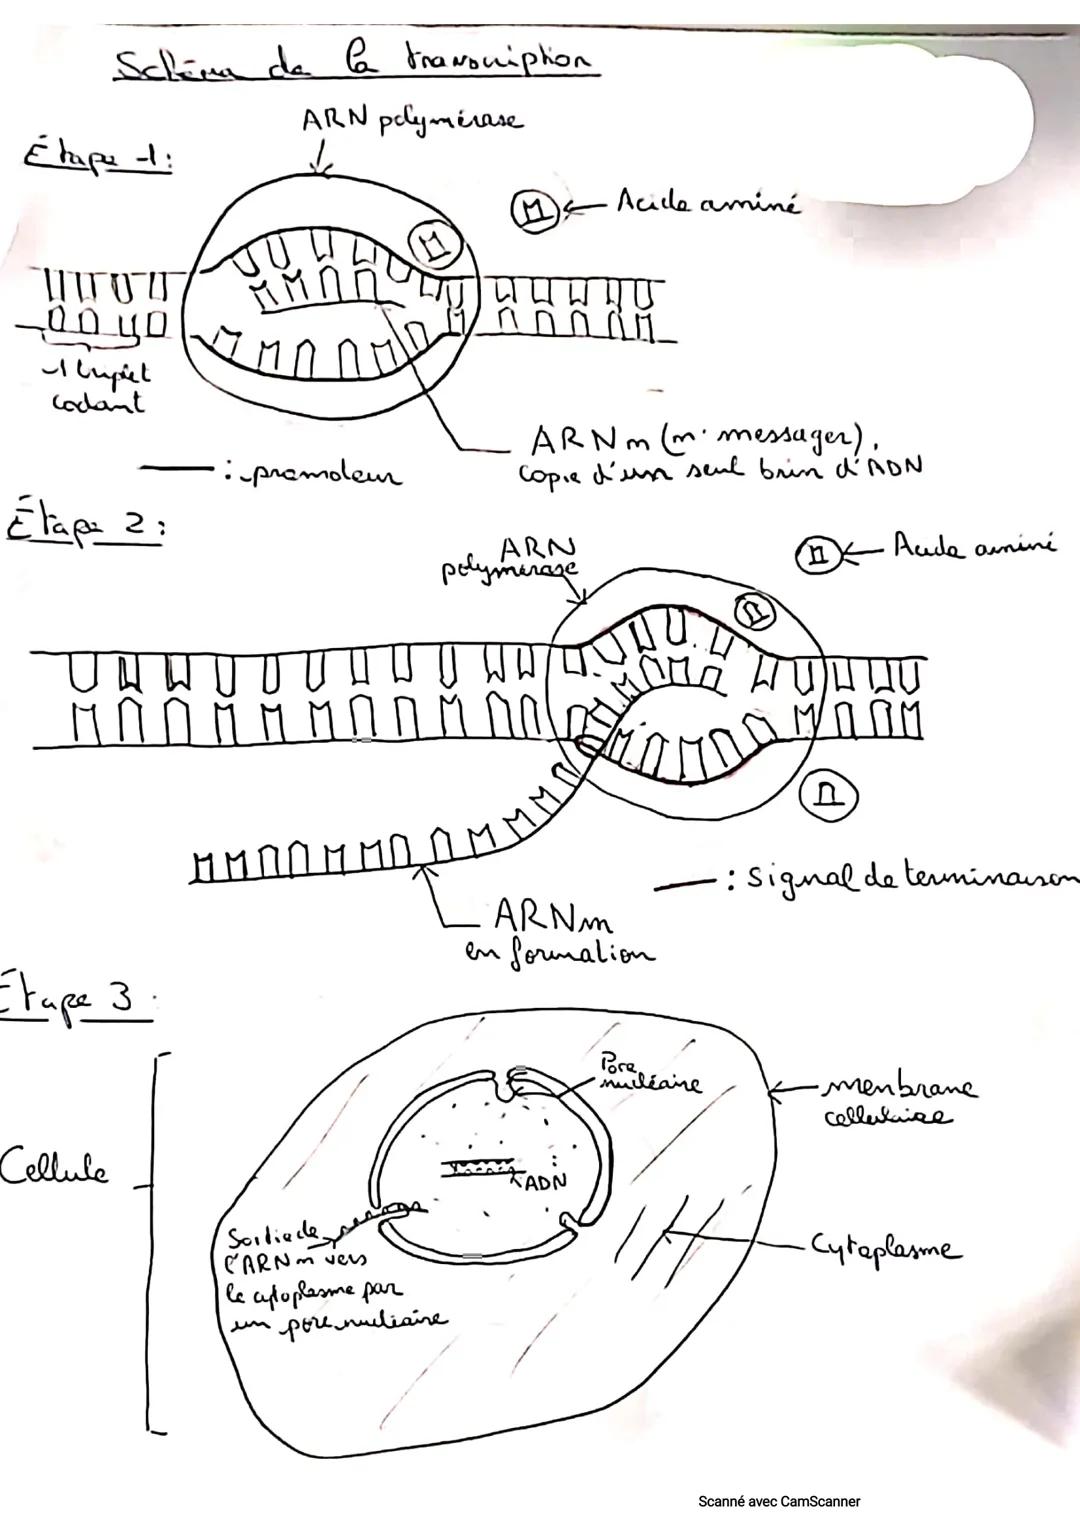 Schéma de la transcription
ARN polymérase
Étape 1:
Acide aminé
1 triplet
codant
ARNm (m: messager),
copie d'un seul brin d'ADN
: promoteur
Étape 2:
ARN
polymérase
Acide aminé
: Signal de terminaison
ARNm
en formation
Étape 3:
Pore
nucléaire
menbrane
cellulaire
Cellule
ADN
Sortie de
l'ARNm vers
le cytoplasme par
un pore nucléaire
Cytoplasme
Scanné avec CamScanner